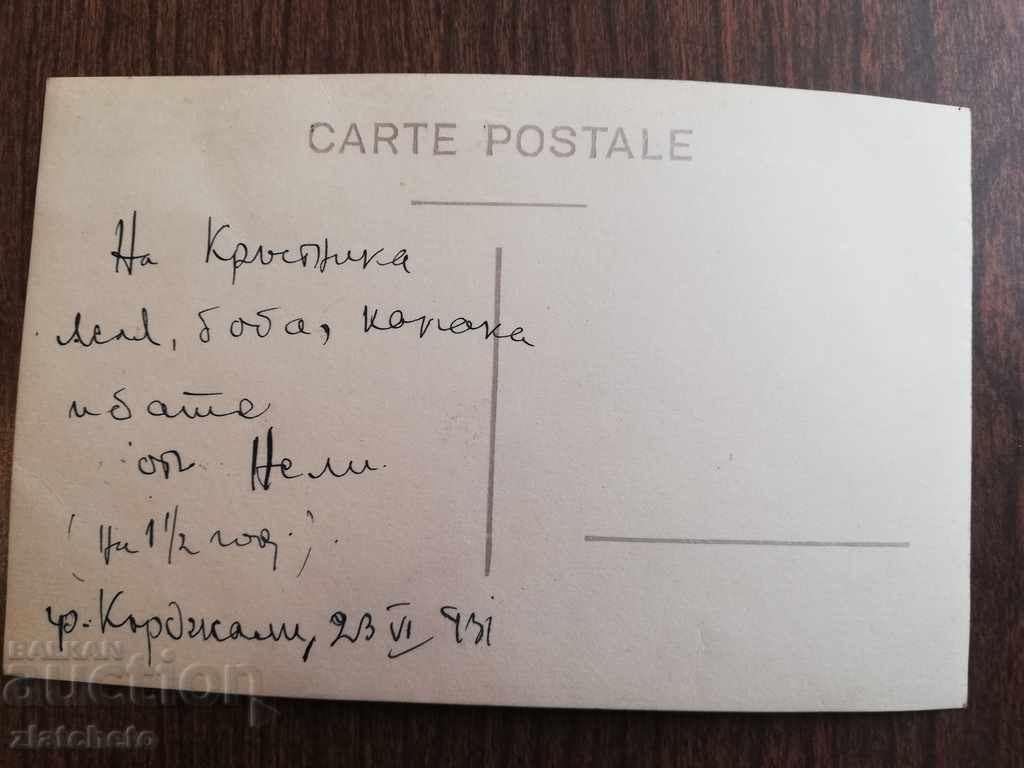 CARTE POSTALE
На Кръстника
боба, какака
и бате
от Нели
(на 1 1/2 год.)
гр. Кърджали, 23 VI 931
BALKAN
auction
zlatcheto